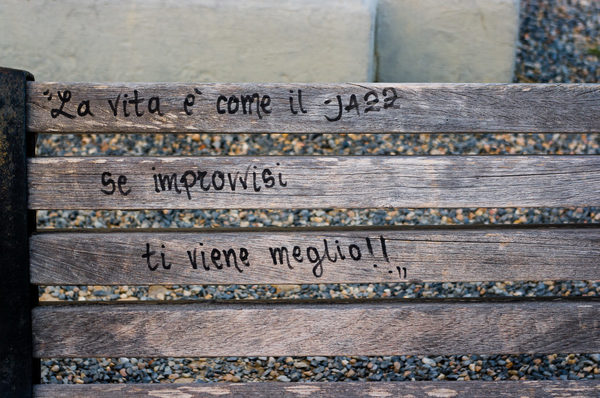 "La vita è come il JAZZ
se improvvisi
ti viene meglio!!"